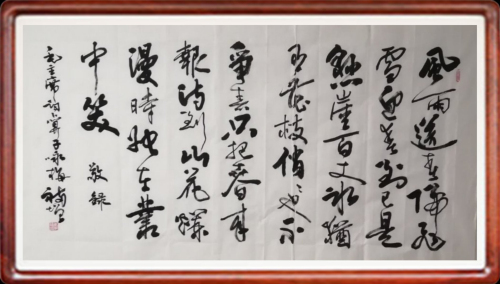 風雨送春归飛
雪迎春到已是
懸崖百丈冰猶
有花枝俏々也不
争春只把春来
報待到山花爛
漫時她在叢
中笑 敬錄
毛主席詞卜算子咏梅